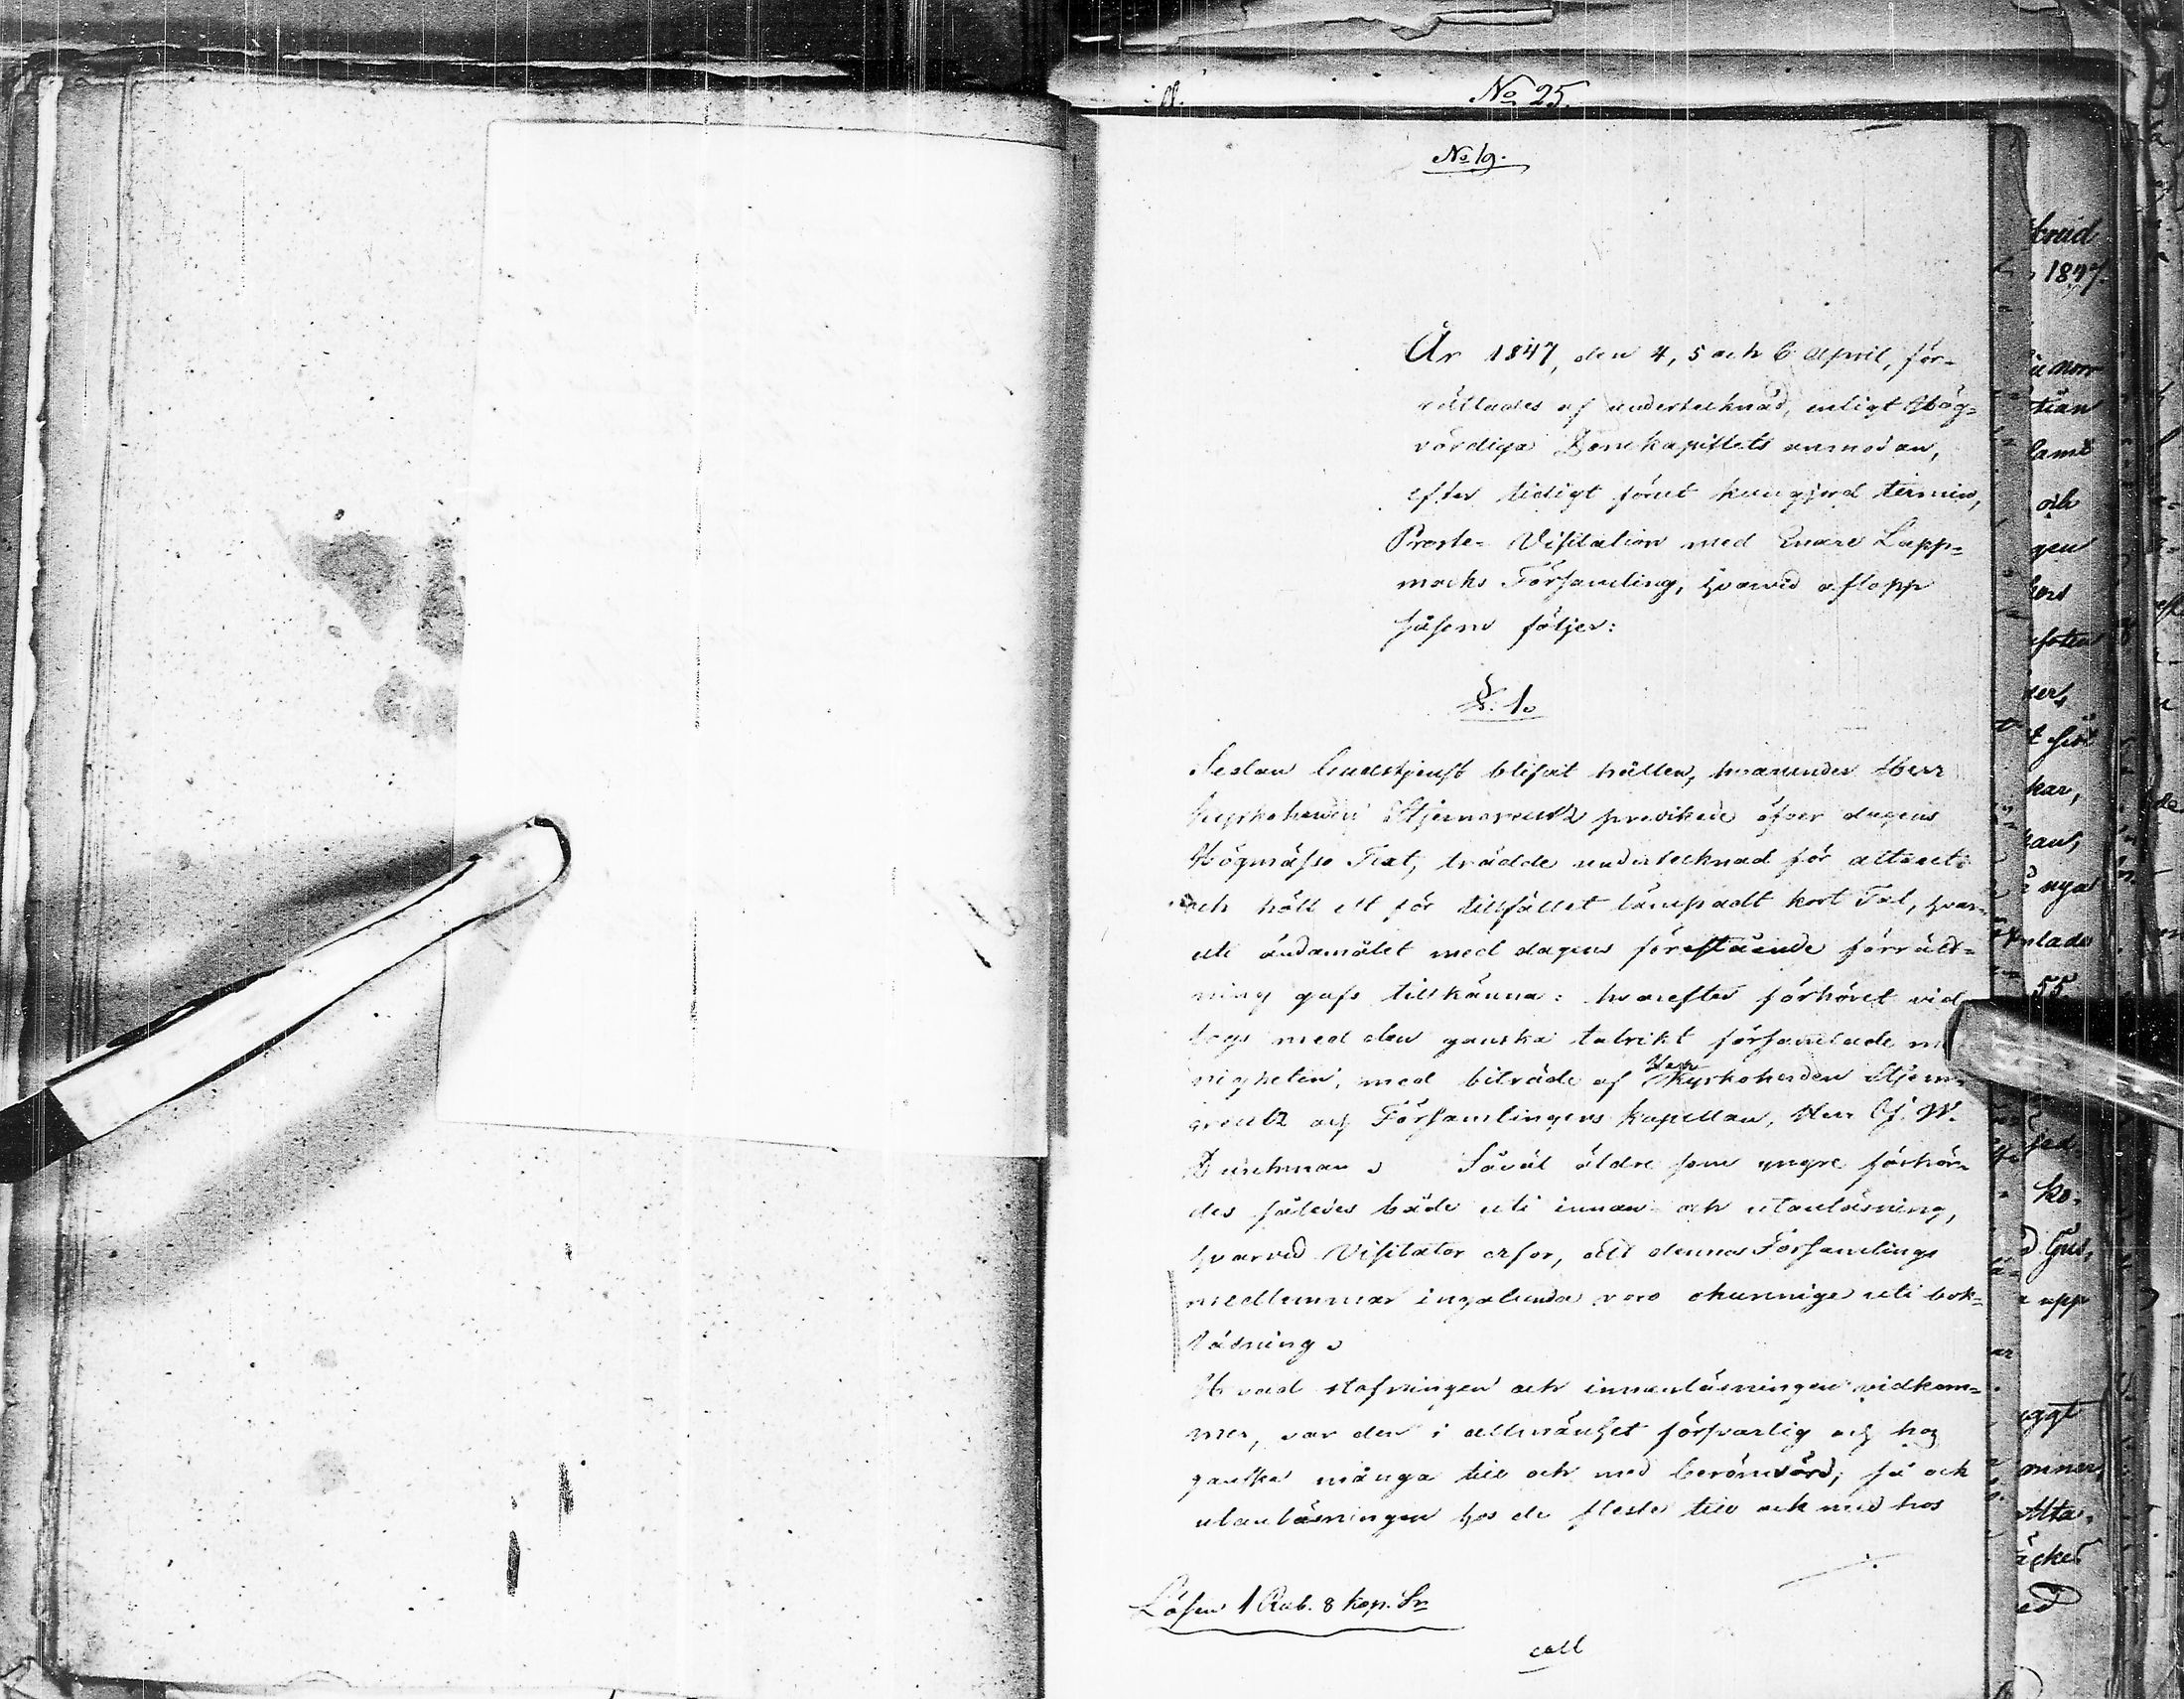 No 25.
No 19.
År 1847, den 4, 5 och 6 April, för-
rättades af undertecknad, enligt Hög-
vördiga Domkapitlets anmodan,
efter tidigt förut kungjord termin,
Proste-Visitation med Enare Lapp-
marks Församling, hvarvid aflopp
såsom följer:
§. 1.
Sedan Gudstjenst blifvit hållen, hvarunder Herr
Kyrkoherden Stjerncreutz predikade öfver dagens
Högmässo Text, trädde undertecknad för altaret
och höll ett för tillfället lämpadt kort Tal, hvar-
uti ändamålet med dagens förestående förrätt-
ning gafs tillkänna: hvarefter förhöret vid
togs med den ganska talrikt församlade
nigheten, med biträde af Herr Kyrkoherden Stjern-
creutz och Församlingens Kapellan, Herr
Såväl äldre som yngre förhör-
des således både uti innan- och utanläsning,
hvarvid Visitator erfor, att denna Församlings
medlemmar ingalunda voro okunnige uti bok-
läsning.
Hvad stafningen och innanläsningen vidkom-
mer, var den i allmänhet försvarlig och hos
ganska många till och med berömvärd; så ock
utanläsningen hos de fleste till och med hos
Lösen 1 Rub. 8 kop. Sr
all
1847.
och
gen
kar,
nya
55
ko-
upp